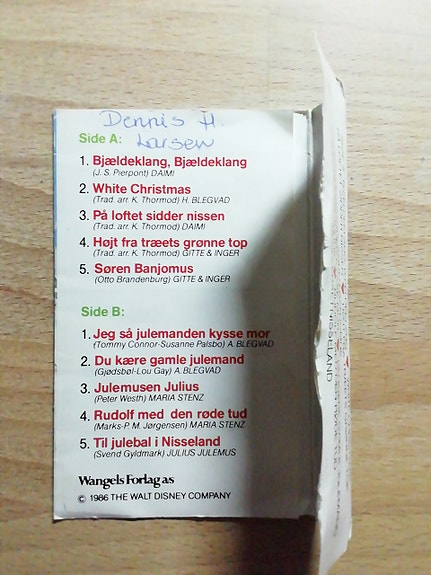 Dennis H.
Larsen
Side A:
1. Bjældeklang, Bjældeklang
(J. S. Pierpont) DAIMI
2. White Christmas
(Trad. arr. K. Thormod) H. BLEGVAD
3. På loftet sidder nissen
(Trad. arr. K. Thormod) DAIMI
4. Højt fra træets grønne top
(Trad. arr. K. Thormod) GITTE & INGER
5. Søren Banjomus
(Otto Brandenburg) GITTE & INGER
Side B:
1. Jeg så julemanden kysse mor
(Tommy Connor-Susanne Palsbo) A. BLEGVAD
2. Du kære gamle julemand
(Gjødsbøl-Lou Gay) A. BLEGVAD
3. Julemusen Julius
(Peter Westh) MARIA STENZ
4. Rudolf med den røde tud
(Marks-P. M. Jørgensen) MARIA STENZ
5. Til julebal i Nisseland
(Svend Gyldmark) JULIUS JULEMUS
Wangels Forlag as
© 1986 THE WALT DISNEY COMPANY
NISSELAND